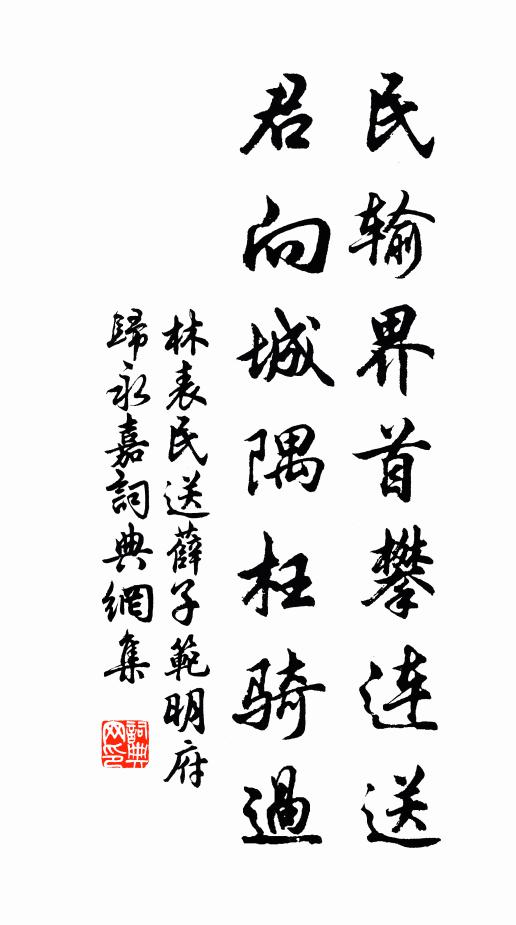 民输界首攀连送
君向城隅枉骑過
林表民送薛子範明府
歸永嘉詞典網集
詞典